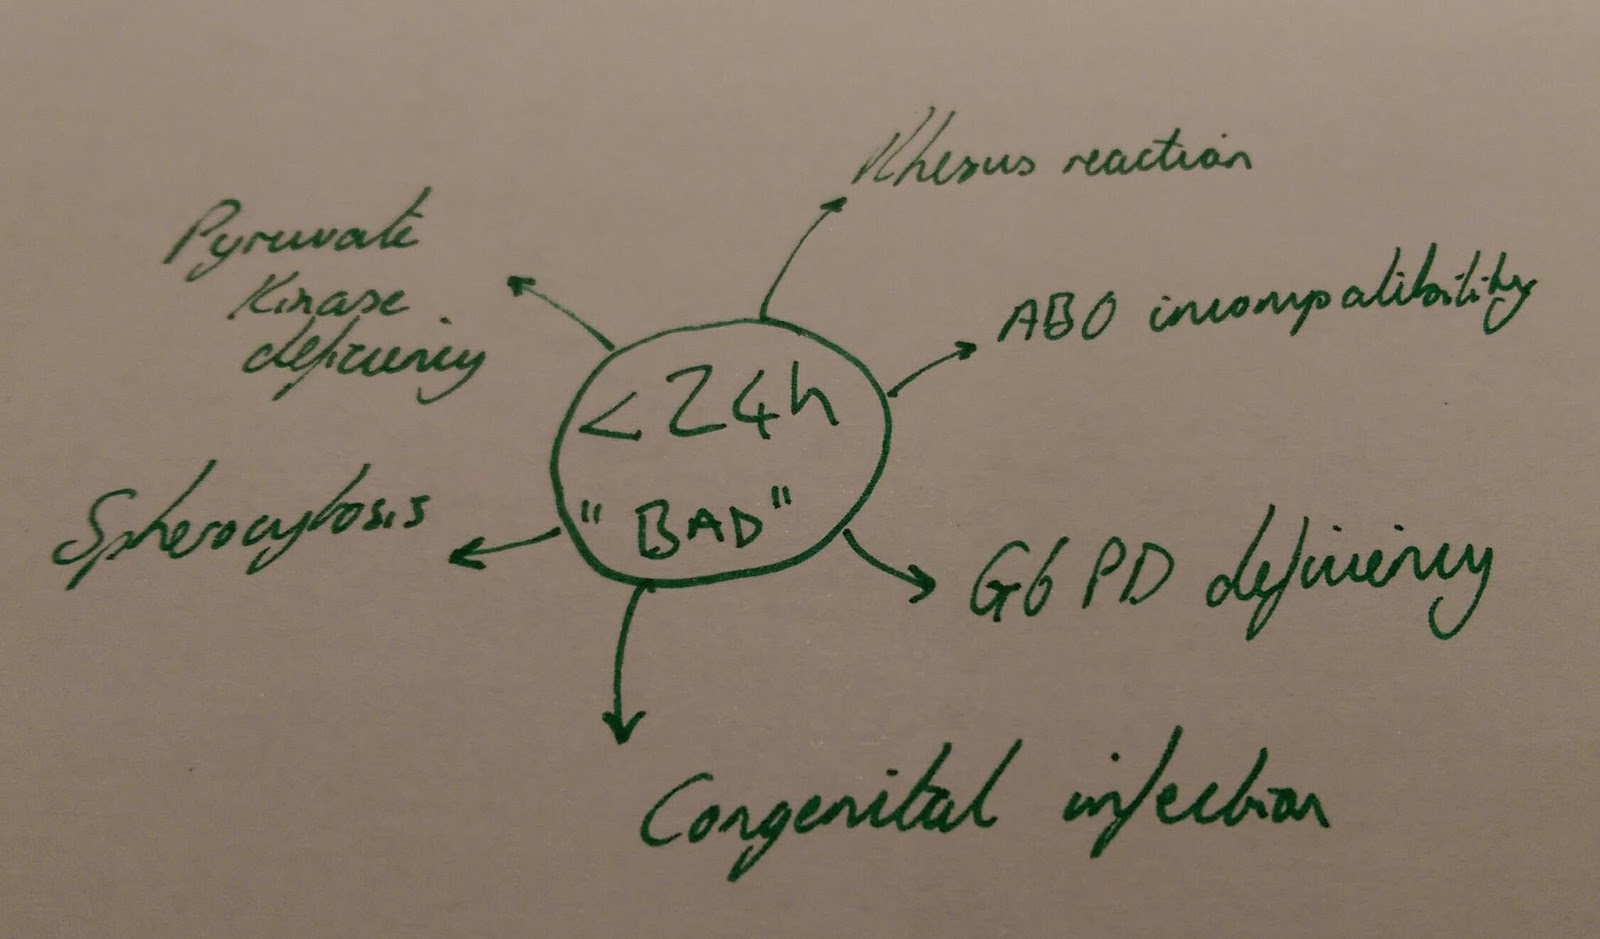 Rhesus reaction
Pyruvate
Kinase
deficiency
ABO incompatibility
<24h
"BAD"
Spherocytosis
G6PD deficiency
Congenital infection